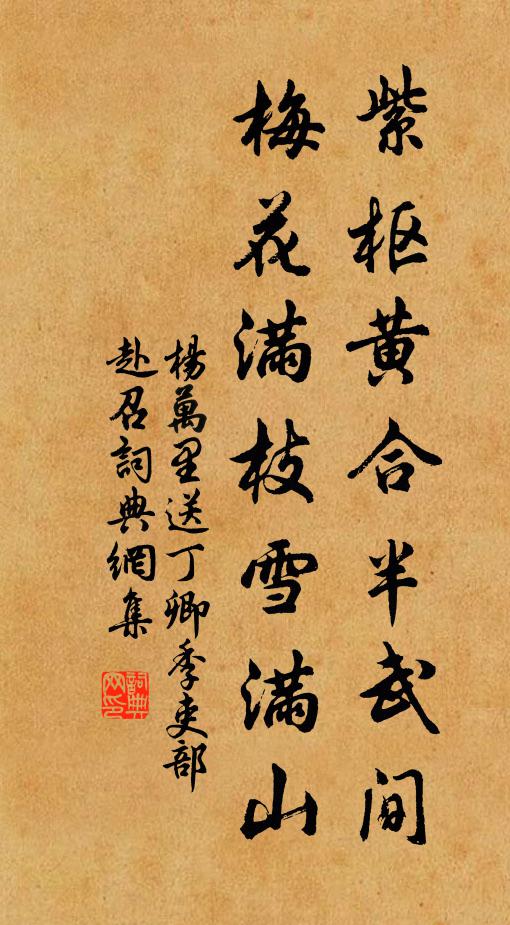 紫枢黄合半武间
梅花满枝雪满山
楊萬里送丁卿季吏部
赴召詞典網集
詞典网印